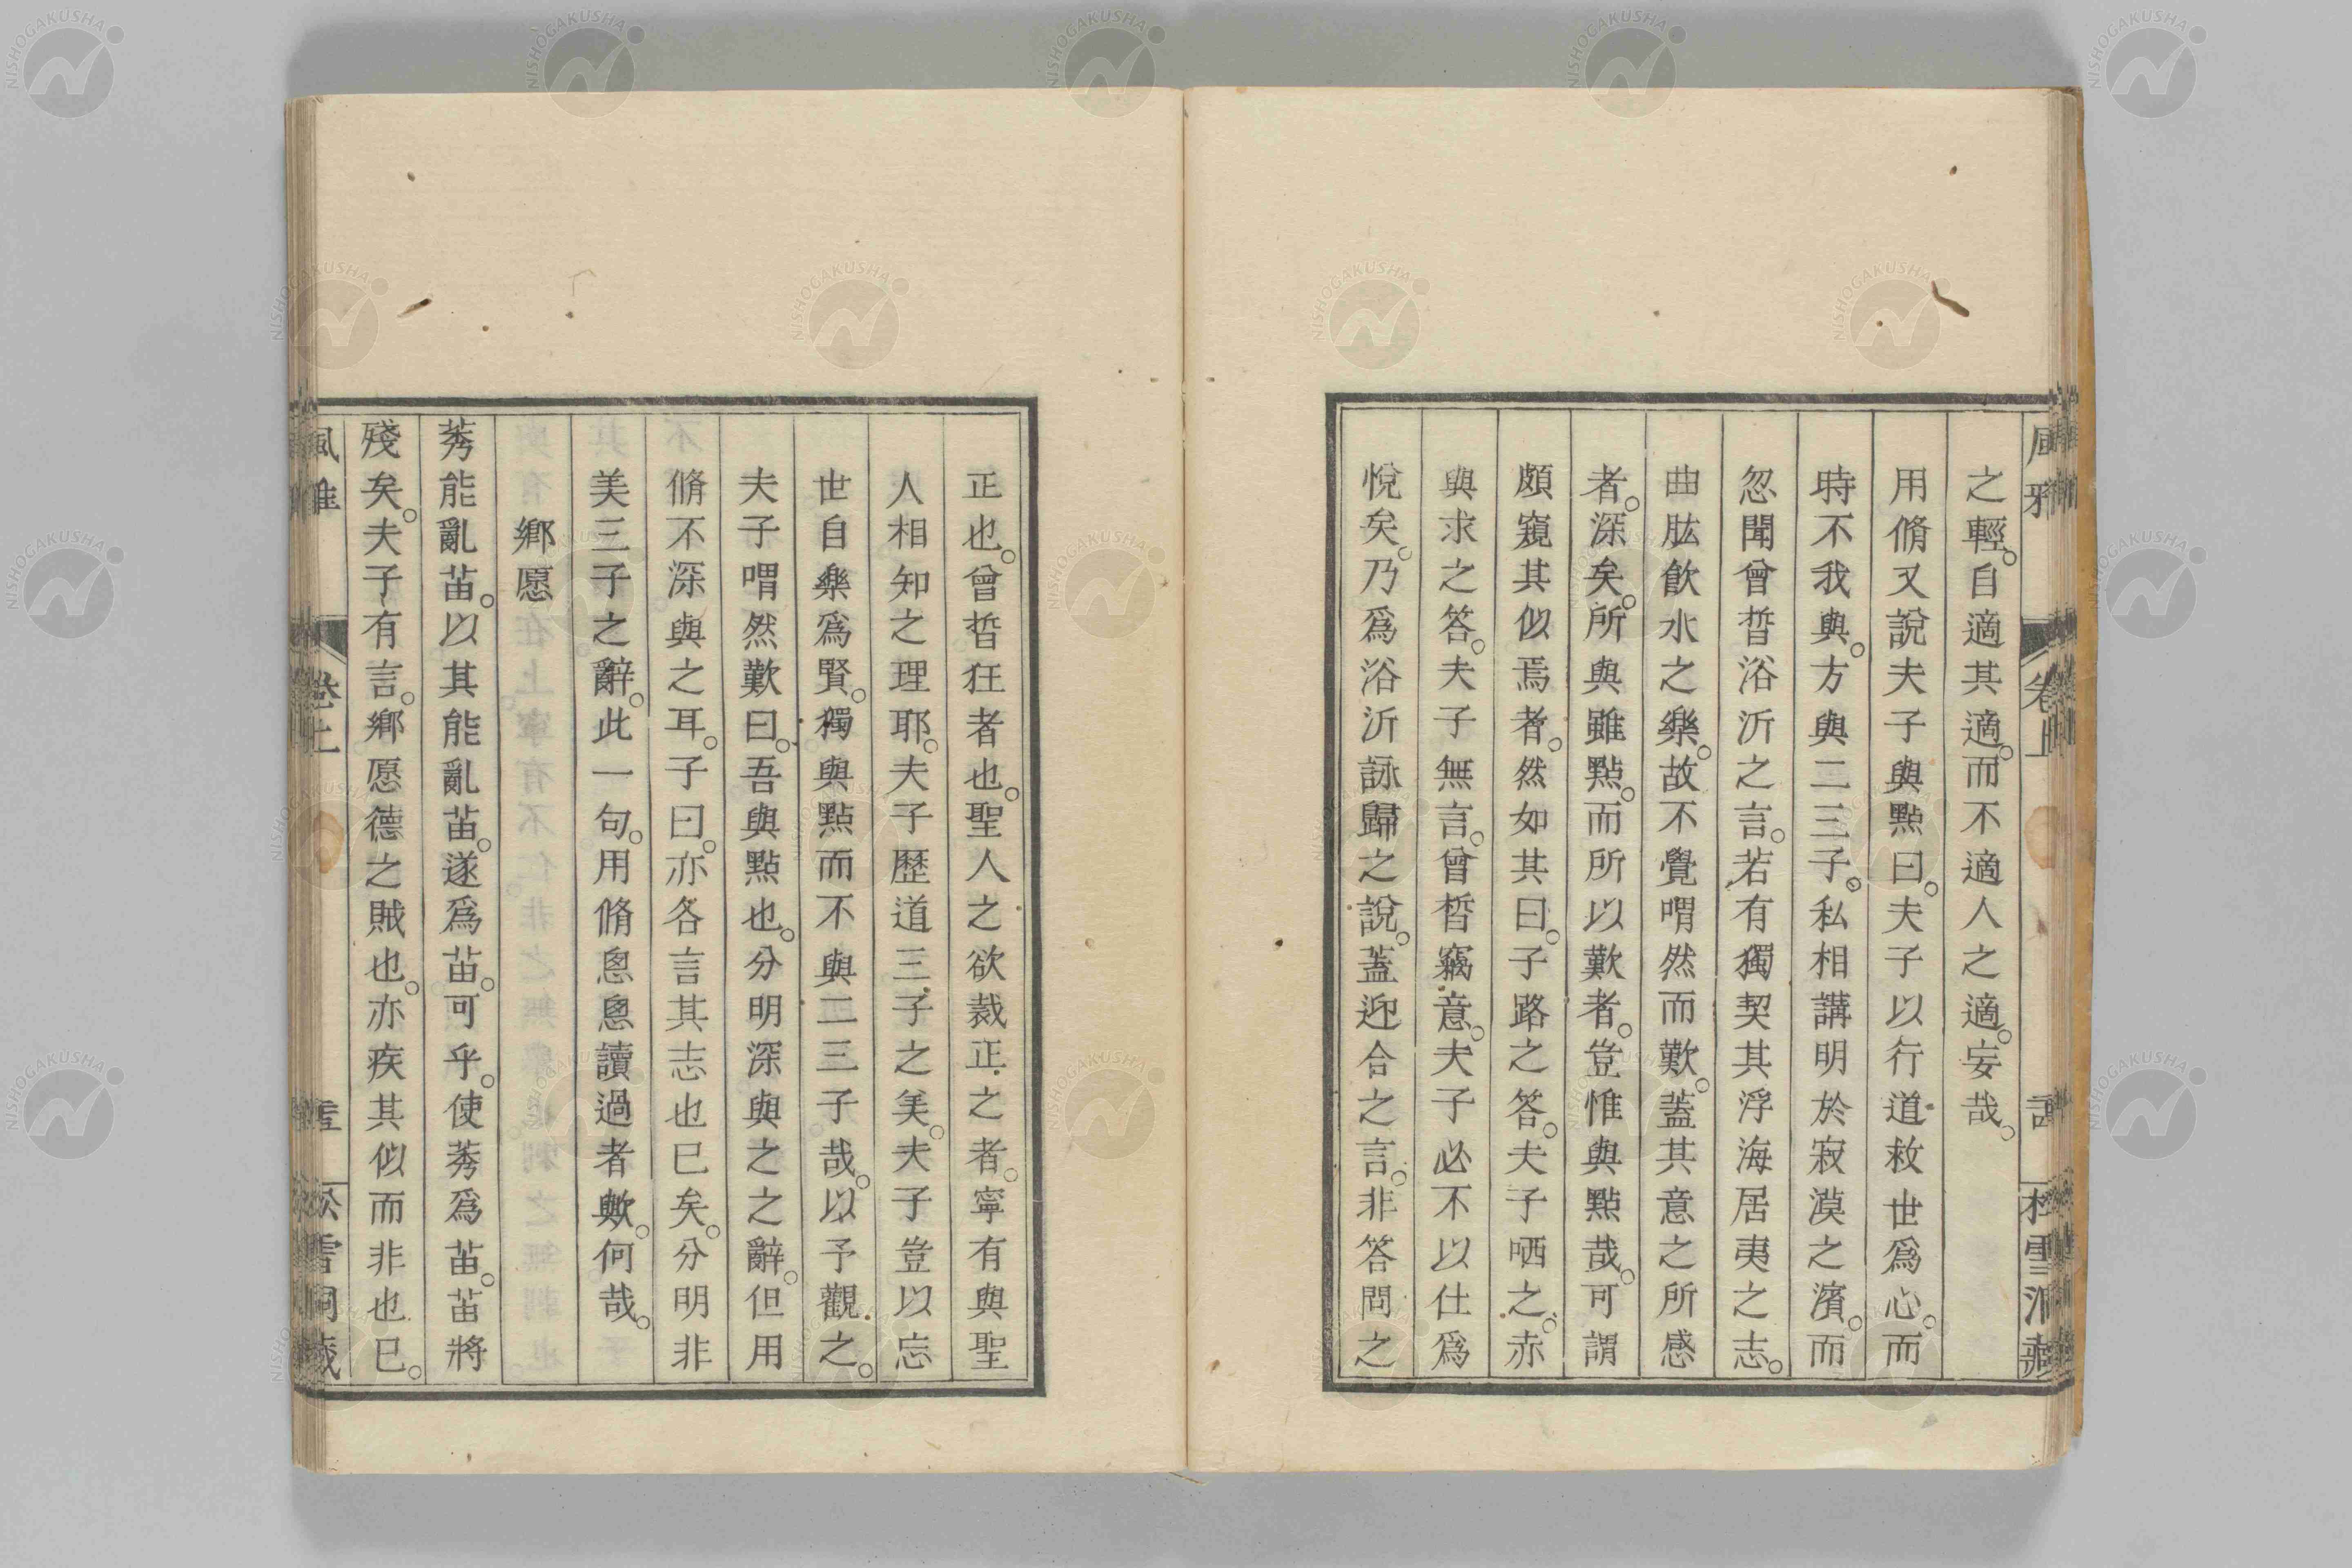 之輕。自適其適。而不適人之適。妄哉。
用脩又說夫子與點曰。夫子以行道救世爲心。而
時不我與。方與二三子。私相講明於寂漠之濱。而
忽聞曾晳浴沂之言。若有獨契其浮海居夷之志。
曲肱飮水之樂。故不覺喟然而歎。蓋其意之所感
者。深矣。所與雖點。而所以歎者。豈惟與點哉。可謂
頗窺其似焉者。然如其曰。子路之答。夫子哂之。赤
與求之答。夫子無言。曾晳竊意。夫子必不以仕爲
悅矣。乃爲浴沂詠歸之說。蓋迎合之言。非答問之
正也。曾晳狂者也。聖人之欲裁正之者。寧有與聖
人相知之理耶。夫子歷道三子之美。夫子豈以忘
世自樂爲賢。獨與點而不與二三子哉。以予觀之。
夫子喟然歎曰。吾與點也。分明深與之之辭。但用
脩不深與之耳。子曰。亦各言其志也已矣。分明非
美三子之辭。此一句。用脩恖恖讀過者歟。何哉。
鄉愿
莠能亂苗。以其能亂苗。遂爲苗。可乎。使莠爲苗。苗將
殘矣。夫子有言。鄉愿德之賊也。亦疾其似而非也已。
卷上